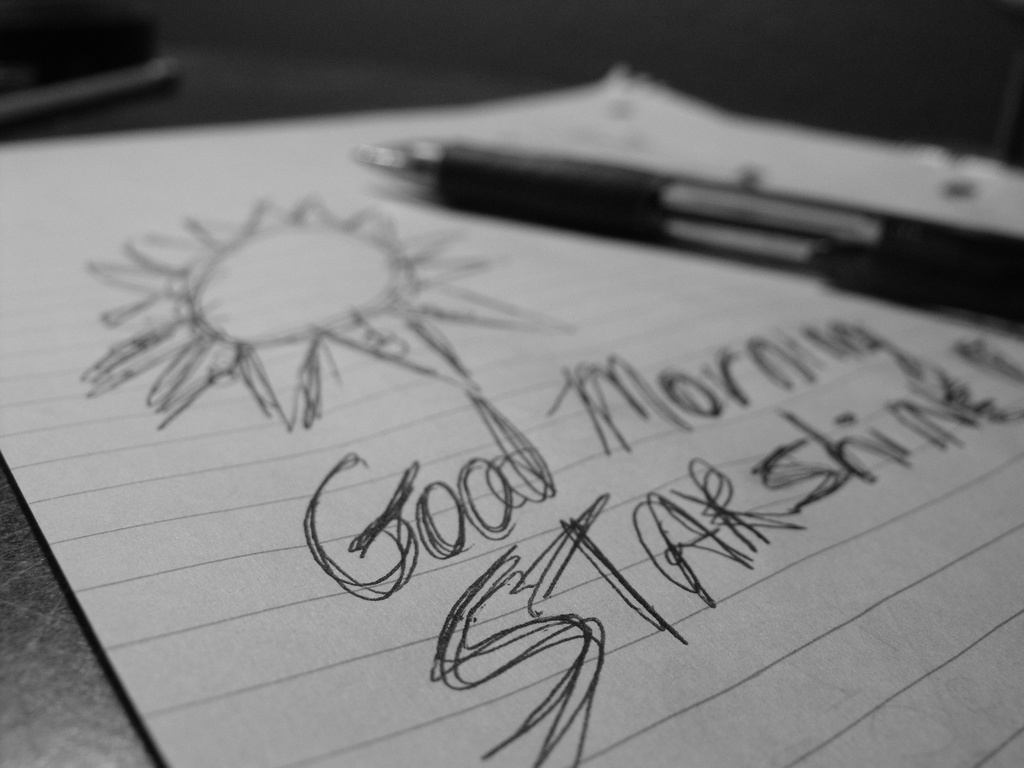 Good Morning
STARshine